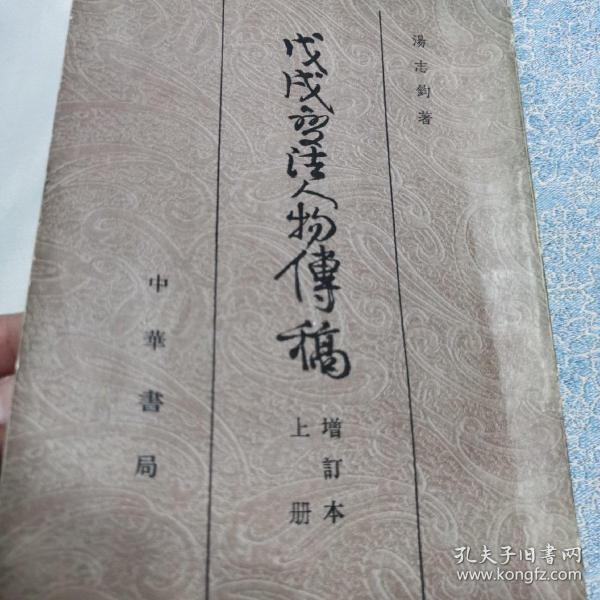 湯志鈞著
戊戌变法人物傳稿
增訂本
上册
中華書局
孔夫子旧书网
www.kongfz.com